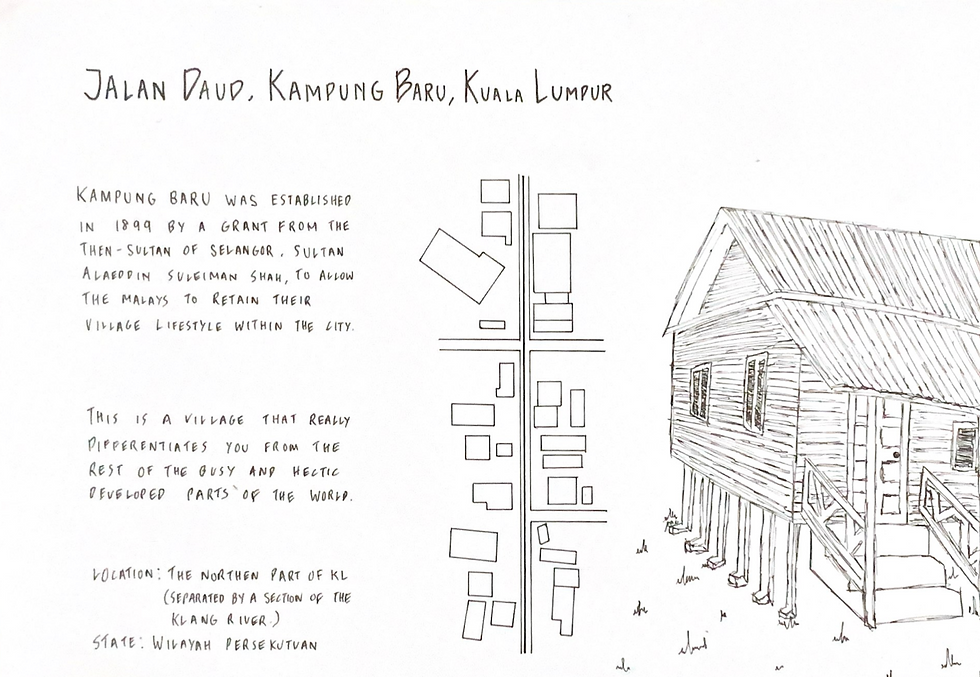 JALAN DAUD, KAMPUNG BARU, KUALA LUMPUR
KAMPUNG BARU WAS ESTABLISHED
IN 1899 BY A GRANT FROM THE
THEN-SULTAN OF SELANGOR, SULTAN
ALAEDDIN SULEIMAN SHAH, TO ALLOW
THE MALAYS TO RETAIN THEIR
VILLAGE LIFESTYLE WITHIN THE CITY.
THIS IS A VILLAGE THAT REALLY
DIFFERENTIATES YOU FROM THE
REST OF THE BUSY AND HECTIC
DEVELOPED PARTS OF THE WORLD.
LOCATION: THE NORTHEN PART OF KL
(SEPARATED BY A SECTION OF THE
KLANG RIVER.)
STATE: WILAYAH PERSEKUTUAN